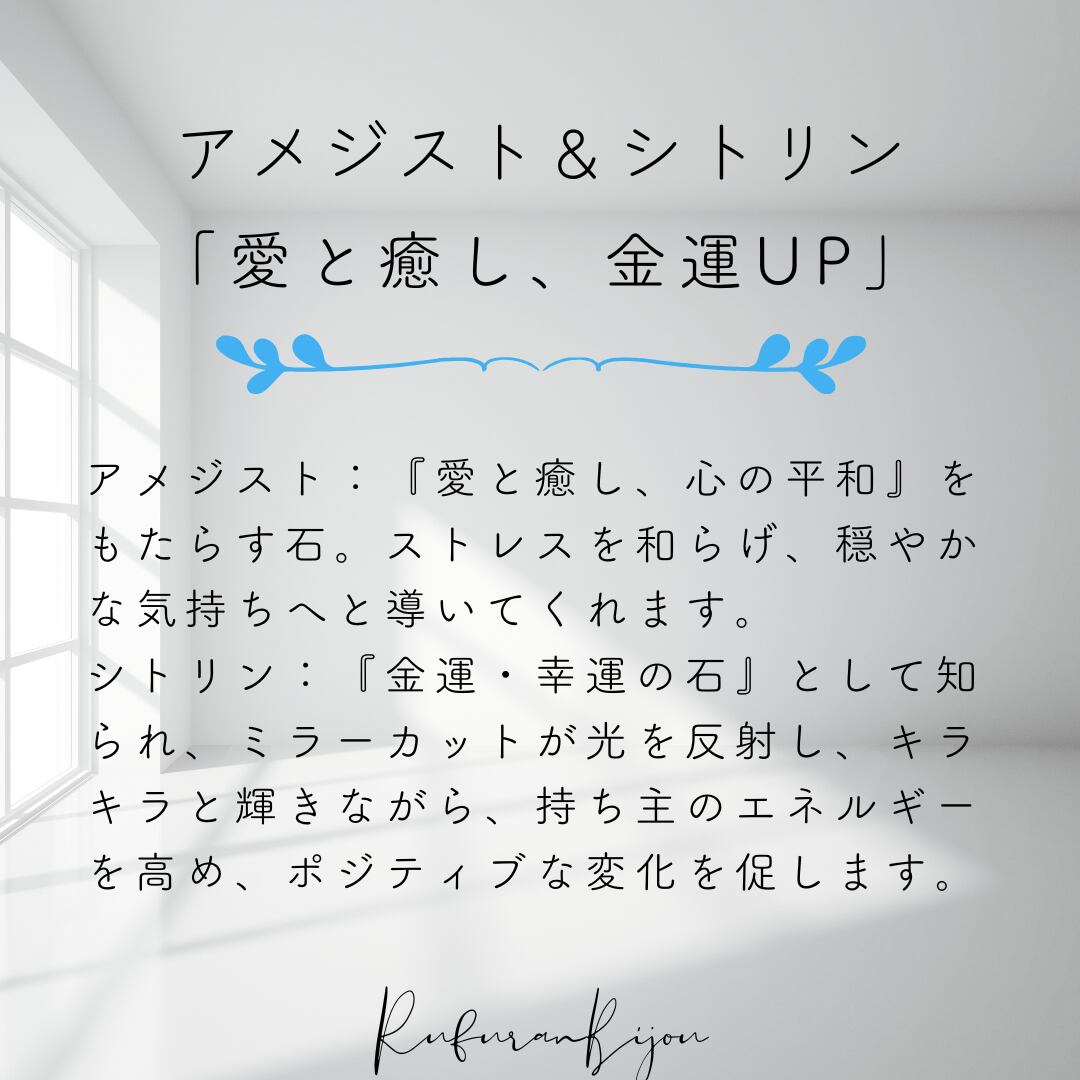 アメジスト＆シトリン
「愛と癒し、金運UP」
アメジスト：『愛と癒し、心の平和』を
もたらす石。ストレスを和らげ、穏やか
な気持ちへと導いてくれます。
シトリン：『金運・幸運の石』として知
られ、ミラーカットが光を反射し、キラ
キラと輝きながら、持ち主のエネルギー
を高め、ポジティブな変化を促します。
RufuranBijou